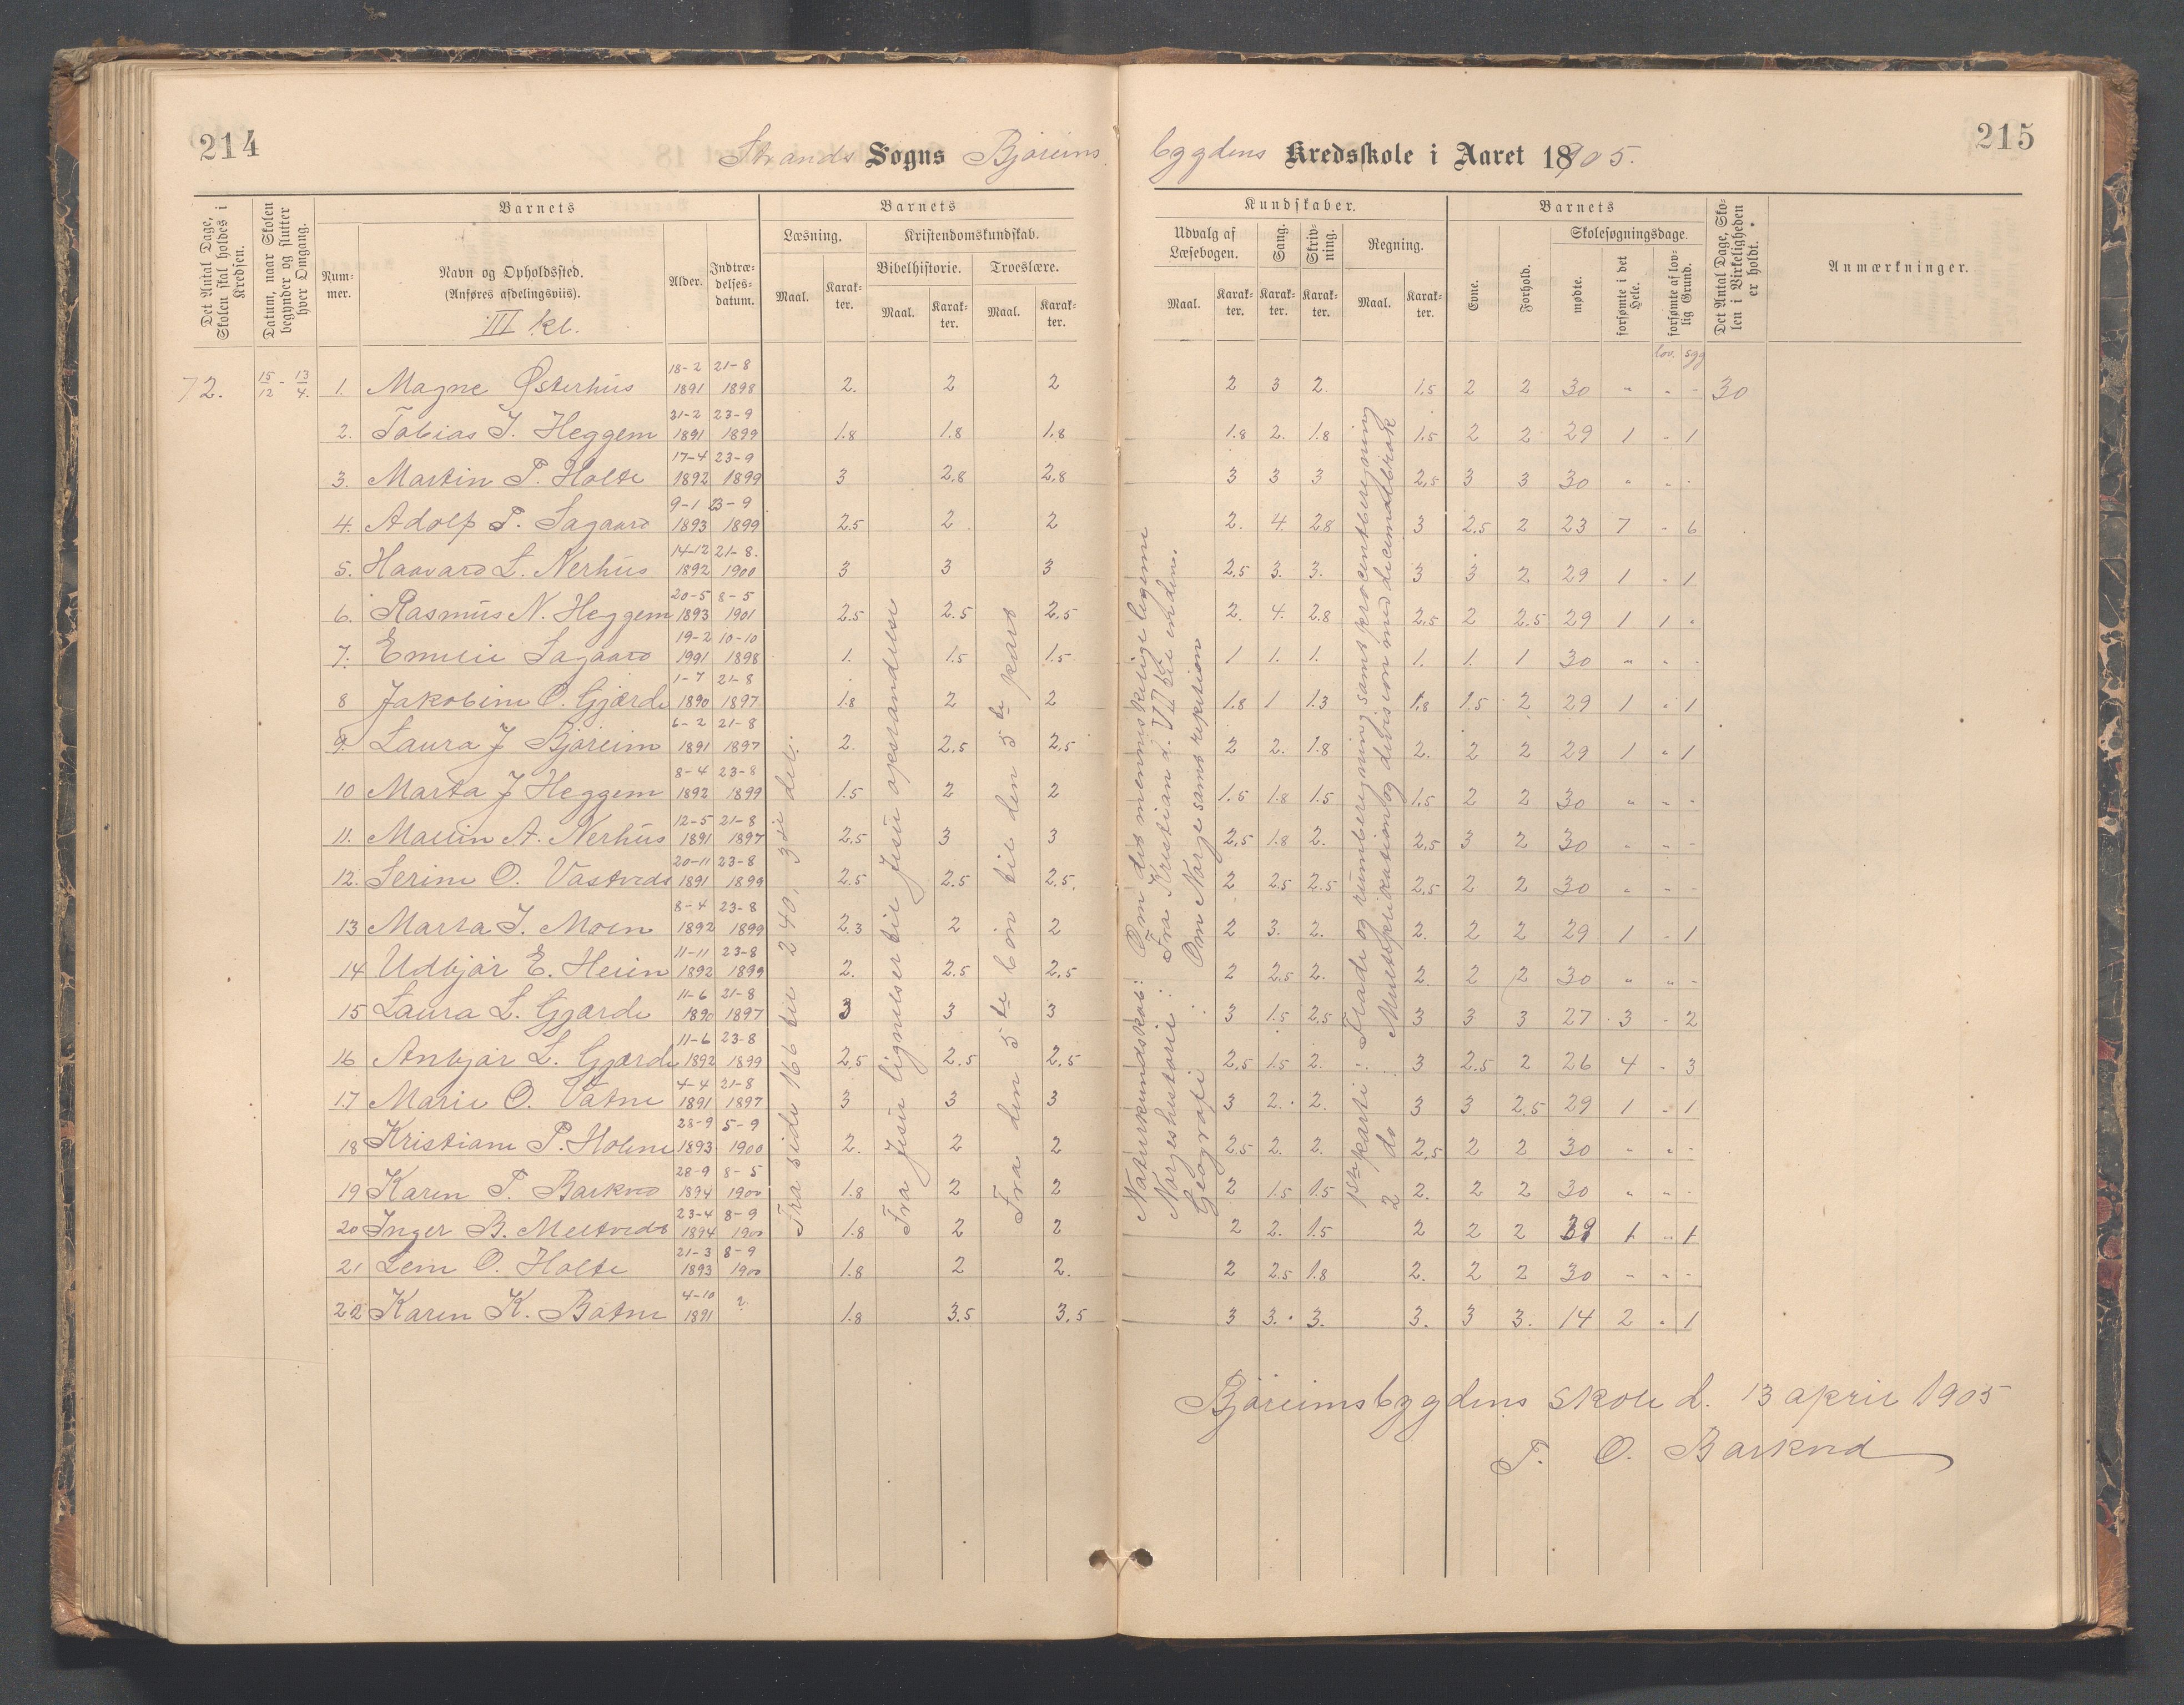 214
215
Strands Sogns Bjøreims bygdens Kredsskole i Aaret 1905.
Det Antal Dage, Skolen skal holdes i Kredsen.
Datum, naar Skolen begynder og slutter hver Omgang.
Barnets
Nummer.
Navn og Opholdssted.
(Anføres afdelingsviis).
III kl.
Alder.
Indtrædelsesdatum.
Barnets
Læsning.
Maal.
Karakter.
Kristendomskundskab.
Bibelhistorie.
Maal.
Karakter.
Troeslære.
Maal.
Karakter.
Kundskaber.
Udvalg af Læsebogen.
Maal.
Karakter.
Sang.
Karakter.
Skrivning.
Karakter.
Regning.
Maal.
Karakter.
Barnets
Evne.
Forhold.
Skolesøgningsdage.
mødte.
forsømte i det Hele.
forsømte af lovlig Grund.
Det Antal Dage, Skolen i Virkeligheden er holdt.
Anmærkninger.
lov. syg
72. 15/12 - 13/4. 1. Magne Østerhus 18-2 1891 21-8 1898 2. 2 2 2 3 2. 1,5 2 2 30 " " - 30
2. Tobias J. Heggem 21-2 1891 23-9 1899 1.8 1.8 1,8 1.8 2. 1.8 1.5 2 2 29 1 - 1
3. Martin P. Holte 17-4 1892 23-9 1899 3 2,8 2,8 3 3 3 2,5 3 3 30 " " -
4. Adolf P. Lagaard 9-1 1893 23-9 1899 2.5 2 2 2. 4. 2.8 3 2.5 2 23 7 - 6
5. Haavard L. Nerhus 14-12 1892 21-8. 1900 3 3 3 2,5 3. 3. 3 3 2 29 1 - 1
6. Rasmus N. Heggem 20-5 1893 8-5 1901 2.5 2.5 2,5 2. 4. 2.8 2,5 2 2.5 29 1 1 "
7. Emilie Lagaard 19-2 1991 10-10 1898 1. 1.5 1.5 1 1. 1. 1. 1. 1 30 " " -
8 Jakobine O. Gjærde 1-7 1890 21-8 1897 1.8 2 2 1.8 1 1.3 1,8 1.5 2 29 1 " 1
9. Laura J Bjøreim 6-2 1891 21-8 1897 2. 2,5 2,5 2 2. 1.8 2. 2 2 29 1 " 1
10 Marta J Heggem 8-4 1892 23-8 1899 1.5 2 2 1,5 1.8 1.5 1,5 2 2 30 " - -
11. Mallin A. Nerhus 12-5 1891 21-8 1897 2,5 3 3 2,5 1.8 2. 2,5 3 2 30 " - -
12. Serine O. Vastveds 20-11 1891 23-8 1899 2.5 2.5 2,5. 2 2.5 2.5 2,5 2 2 30 " - -
13 Marta J. Moen 8-4 1892 23-8 1899 2.3 2 2 2 3. 2. 2. 2 2 29 1 - 1
14 Udbjør E. Heien 11-11 1892 23-8 1899 2. 2.5 2,5 2 2.5 2. 2. 2 2 30 " " -
15 Laura L. Gjærde 11-6 1890 21-8 1897 3 3 3 3 1.5 2.5 3 3 3 27 3 - 2
16 Anbjør L. Gjærde 11-6 1892 23-8 1899 2,5 2.5 2,5 2,5 1.5 2. 3 2.5 2 26 4 - 3
17 Marie O. Vatne 4-4 1891 21-8 1897 3 3 3 3 2. 2. 3 3 2.5 29 1 - 1
18 Kristiane P. Holene 28-9 1893 5-9 1900 2. 2 2 2.5 2. 2. 2,5 2 2 30 " " -
19 Karen T. Barkved 28-9 1894 8-5 1900 1.8 2 2 2 1.5 1.5 2. 2 2 30 " " -
20 Inger B. Meltveds 23-4 1894 8-9 1900 1.8 2 2 2 2. 1.5 2 2 2 29 1 " 1
21 Lene O. Holte 21-3 1893 8-9 1900 1.8 2 2. 2 2.5 1.8 2. 2 2 30 - - -
22 Karen K. Botne 4-10 1891 ? 1.8 3.5 3,5 3 3. 3. 3. 3 3. 14 2 " 1
Fra side 166 til 240, 3die del.
Fra Jesu lignelser til Jesu opstandelse
Fra den 5te bøn til den 5te part
Naturkundskab: Om det menneskelige legeme
Norgeshistorie: Fra Kristian d. VII til enden.
Geografi: Om Norge samt repetion
1ste parti: Flade og rumberegning samt procentberegning
2 do Multiplikation og division med decimalbrøk
Bjøreimsbygdens skole d. 13 april 1905
T. O. Barkved